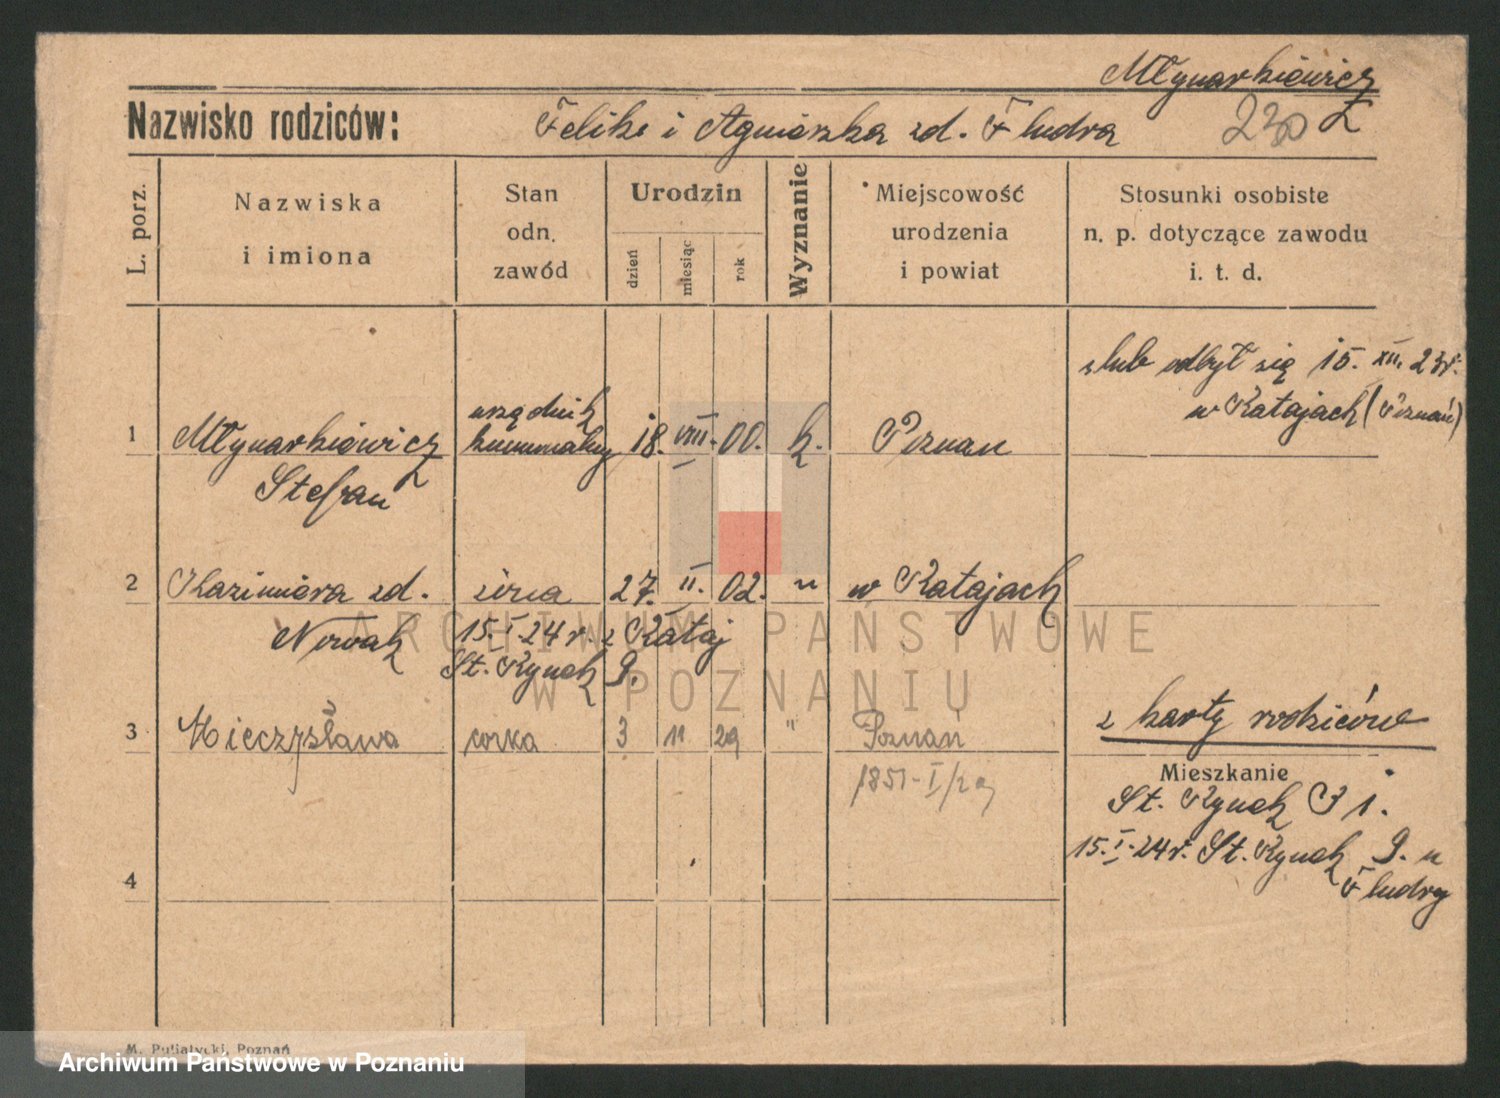 Młynarkiewicz
Nazwisko rodziców: Feliks i Agnieszka zd. Fludra 230
L. porz.
Nazwiska
i imiona
Stan
odn.
zawód
Urodzin
dzień
miesiąc
rok
Wyznanie
Miejscowość
urodzenia
i powiat
Stosunki osobiste
n. p. dotyczące zawodu
i. t. d.
ślub odbył się 15. XII. 23r.
w Ratajach (Poznań)
urzędnik
1 Młynarkiewicz komunalny 18. VIII. 00. k. Poznań
Stefan
2 Kazimiera zd. żona 27. II. 02. " w Ratajach
Nowak 15. I. 24 r. z Rataj
St. Rynek 9.
3 Mieczysława córka 3 11 29 " Poznań
1851-I/29
z karty rodziców
Mieszkanie
St. Rynek 31.
15. I. 24 r. St. Rynek 9. u
Fludry
4
ARCHIWUM PAŃSTWOWE
W POZNANIU
M. Putiatycki, Poznań
Archiwum Państwowe w Poznaniu